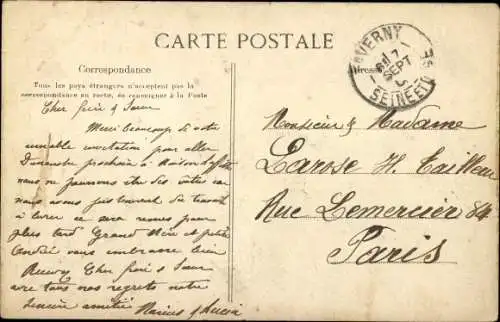 CARTE POSTALE
Correspondance
Tous les pays étrangers n'acceptent pas la
correspondance au recto, se renseigner à la Poste
TAVERNY
7
SEPT
SEINE ET OISE
Cher frère & Sœur
Merci beaucoup de votre
aimable invitation pour aller
Dimanche prochain à Maison Laffitte
nous ne pourrons être des vôtres car
nous avons just travail de travail
à livrer ce sera remis pour
plus tard Grand Mère et petite
Andrée vous embrasse bien
Recevez Cher frère & Sœur
avec tous nos regrets notre
sincère amitié
Monsieur & Madame
Larose H. Tailleur
Rue Lemercier 84
Paris